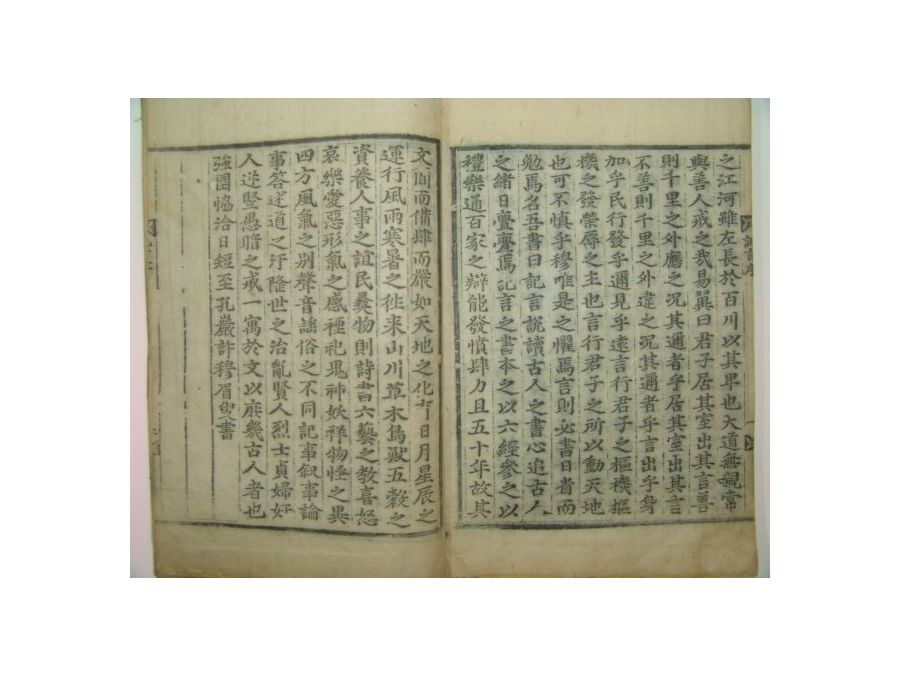 記言序
之江河雖左長於百川以其卑也大道無親常
與善人戒之哉易翼曰君子居其室出其言善
則千里之外應之况其邇者乎居其室出其言
不善則千里之外違之况其邇者乎言出乎身
加乎民行發乎邇見乎遠言行君子之樞機樞
機之發榮辱之主也言行君子之所以動天地
也可不慎乎穆唯是之懼焉言則必書日省而
勉焉名吾書曰記言說讀古人之書心追古人
之緖日亹亹焉記言之書本之以六經參之以
禮樂通百家之辯能發憤肆力且五十年故其
文簡而備肆而嚴如天地之化育日月星辰之
運行風雨寒暑之徃来山川草木鳥獸五穀之
資養人事之誼民彝物則詩書六藝之教喜怒
哀樂愛惡形氣之感禋祀鬼神妖祥物怪之異
四方風氣之别聲音謡俗之不同記事叙事論
事答述道之汙隆世之治亂賢人烈士貞婦奸
人逆竪愚暗之戒一寓於文以庶幾古人者也
強圉恊洽日短至孔巖許穆眉叟書